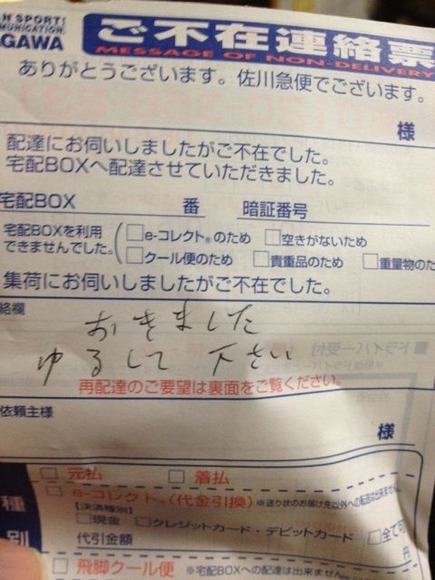 N SPORT!
MMUNICATION.
GAWA
ご不在連絡票
MESSAGE OF NON-DELIVERY
ありがとうございます。佐川急便でございます。
様
配達にお伺いしましたがご不在でした。
宅配BOXへ配達させていただきました。
宅配BOX 番 暗証番号
宅配BOXを利用できませんでした。
□e-コレクト®のため □空きがないため
□クール便のため □貴重品のため □重量物のた
集荷にお伺いしましたがご不在でした。
絡欄
おきました
ゆるして下さい
再配達のご要望は裏面をご覧ください。
依頼主様
様
種別
□元払 □着払
□e-コレクト®(代金引換)※送り状のお届け先以外への転送は出来ません。
【決済種別】
□現金 □クレジットカード・デビットカード □全て可
代引金額 円
□飛脚クール便 ※宅配BOXへの配達は出来ません。